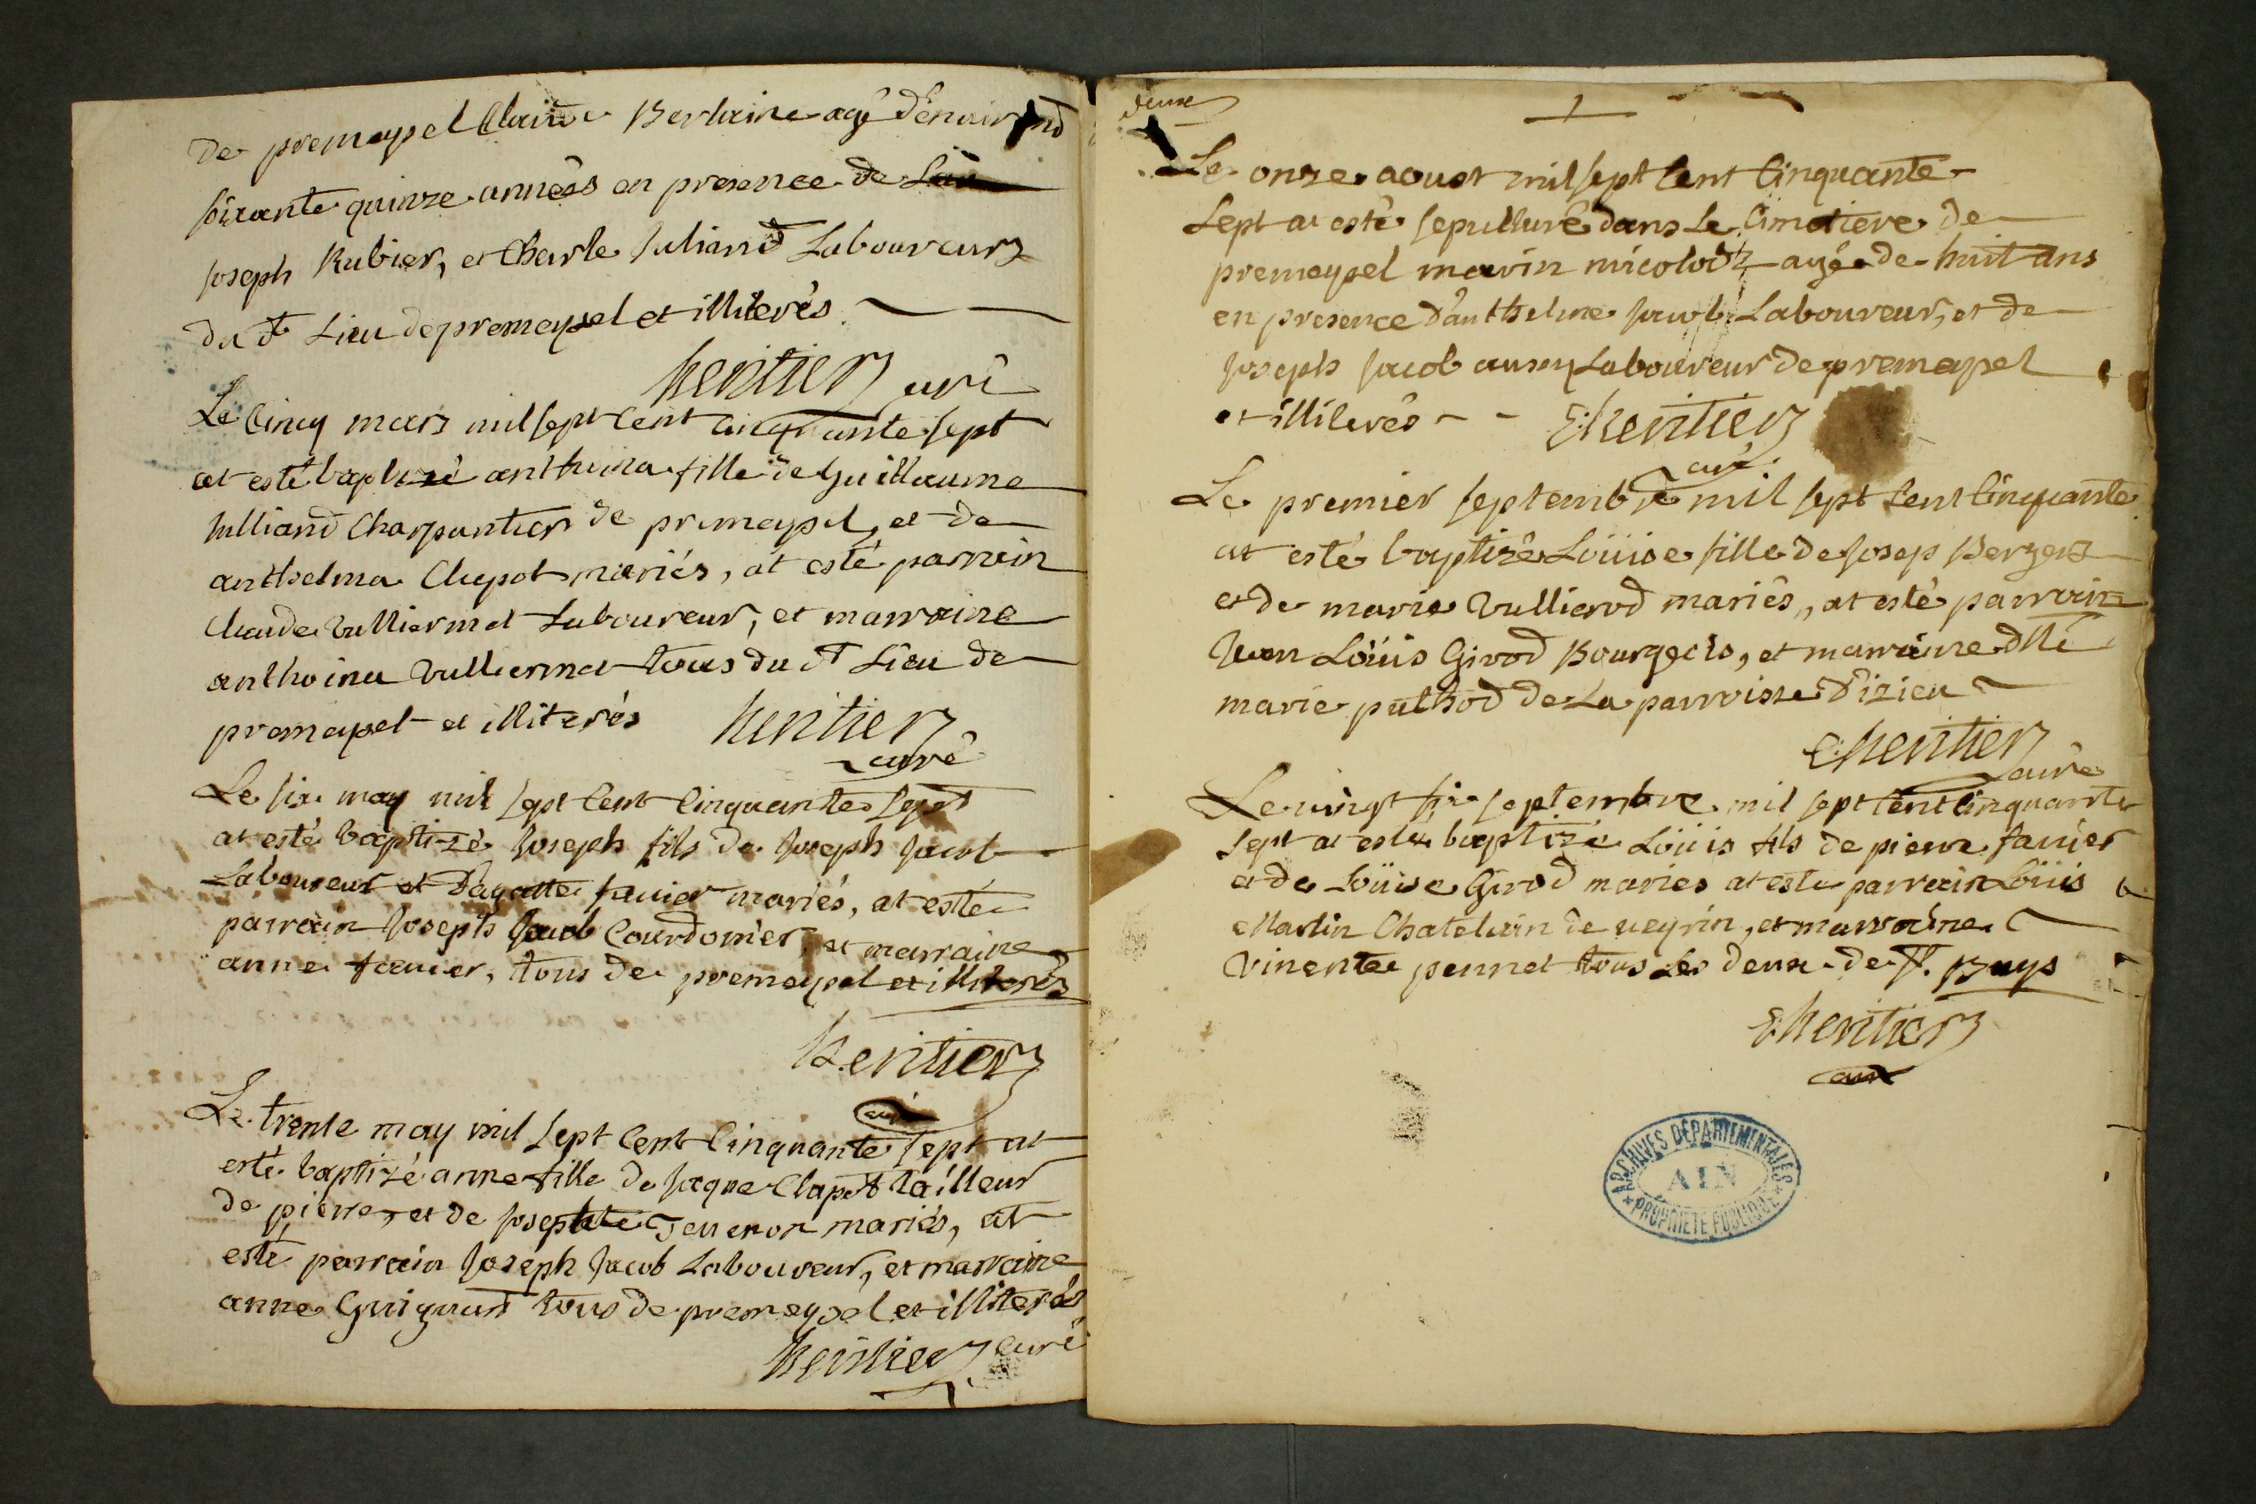 de premeyzel Claire Berlaire agé d'enuiront
soixante quinze années en presence de
Joseph Rubier, et Charle Juliand Laboureurs
du dt Lieu de premeyzel et illiterés
heritier curé
Le Cinq mars mil sept Cent cinquante sept
at esté baptizé anthoina fille de Guillaume
Julliand Charpantier de premeyzel, et de
anthelma Clupot mariés, at esté parrain
Claude Vulliermet Laboureur, et marraine
anthoina Vulliermet tous du dt Lieu de
premeyzel et illiterés heritier
curé
Le six may mil sept Cent Cinquante sept
at esté baptizé Joseph fils de Joseph Jacob
Laboureur et D'agatte Janier mariés, at esté
parrain Joseph Jacob Courdonier, et marraine
anne Janier, tous de premeyzel et illiterés
heritier
curé
Le trente may mil sept Cent Cinquante sept at
esté baptizé anne fille de Jaque Clapot tailleur
de pierre, et de Josephte mariés, at
esté parrain Joseph Jacob Laboureur, et marraine
anne Guiguet tous de premeyzel et illiterés
heritier curé
deux
1
Le onze aoust mil sept Cent Cinquante
Sept at esté sepulturé dans Le Cimetiere de
premeyzel marin micolod agé de huit ans
en presence d'anthelme Jacob Laboureur, et de
Joseph Jacob aussy Laboureur de premeyzel
et illiterés - - E. heritier
curé.
Le premier septembre mil sept Cent Cinquante
at esté baptizé Loüise fille de Josep Berger
et de marie Vullierod mariés, at esté parrain
Jean Loüis Girod Bourgeois, et marraine dlle
marie puthod de La parroisse d'izieu
E. heritier
curé
Le vingt six septembre mil sept Cent Cinquante
sept at esté baptizé Loüis fils de pierre Janier
et de Loüise Girod mariés at esté parrain Loüis
Martin Chatelain de veyrin, et marraine
Vinente pennet tous les deux de St. Buys
E. heritier
curé
ARCHIVES DÉPARTEMENTALES
AIN
PROPRIÉTÉ PUBLIQUE